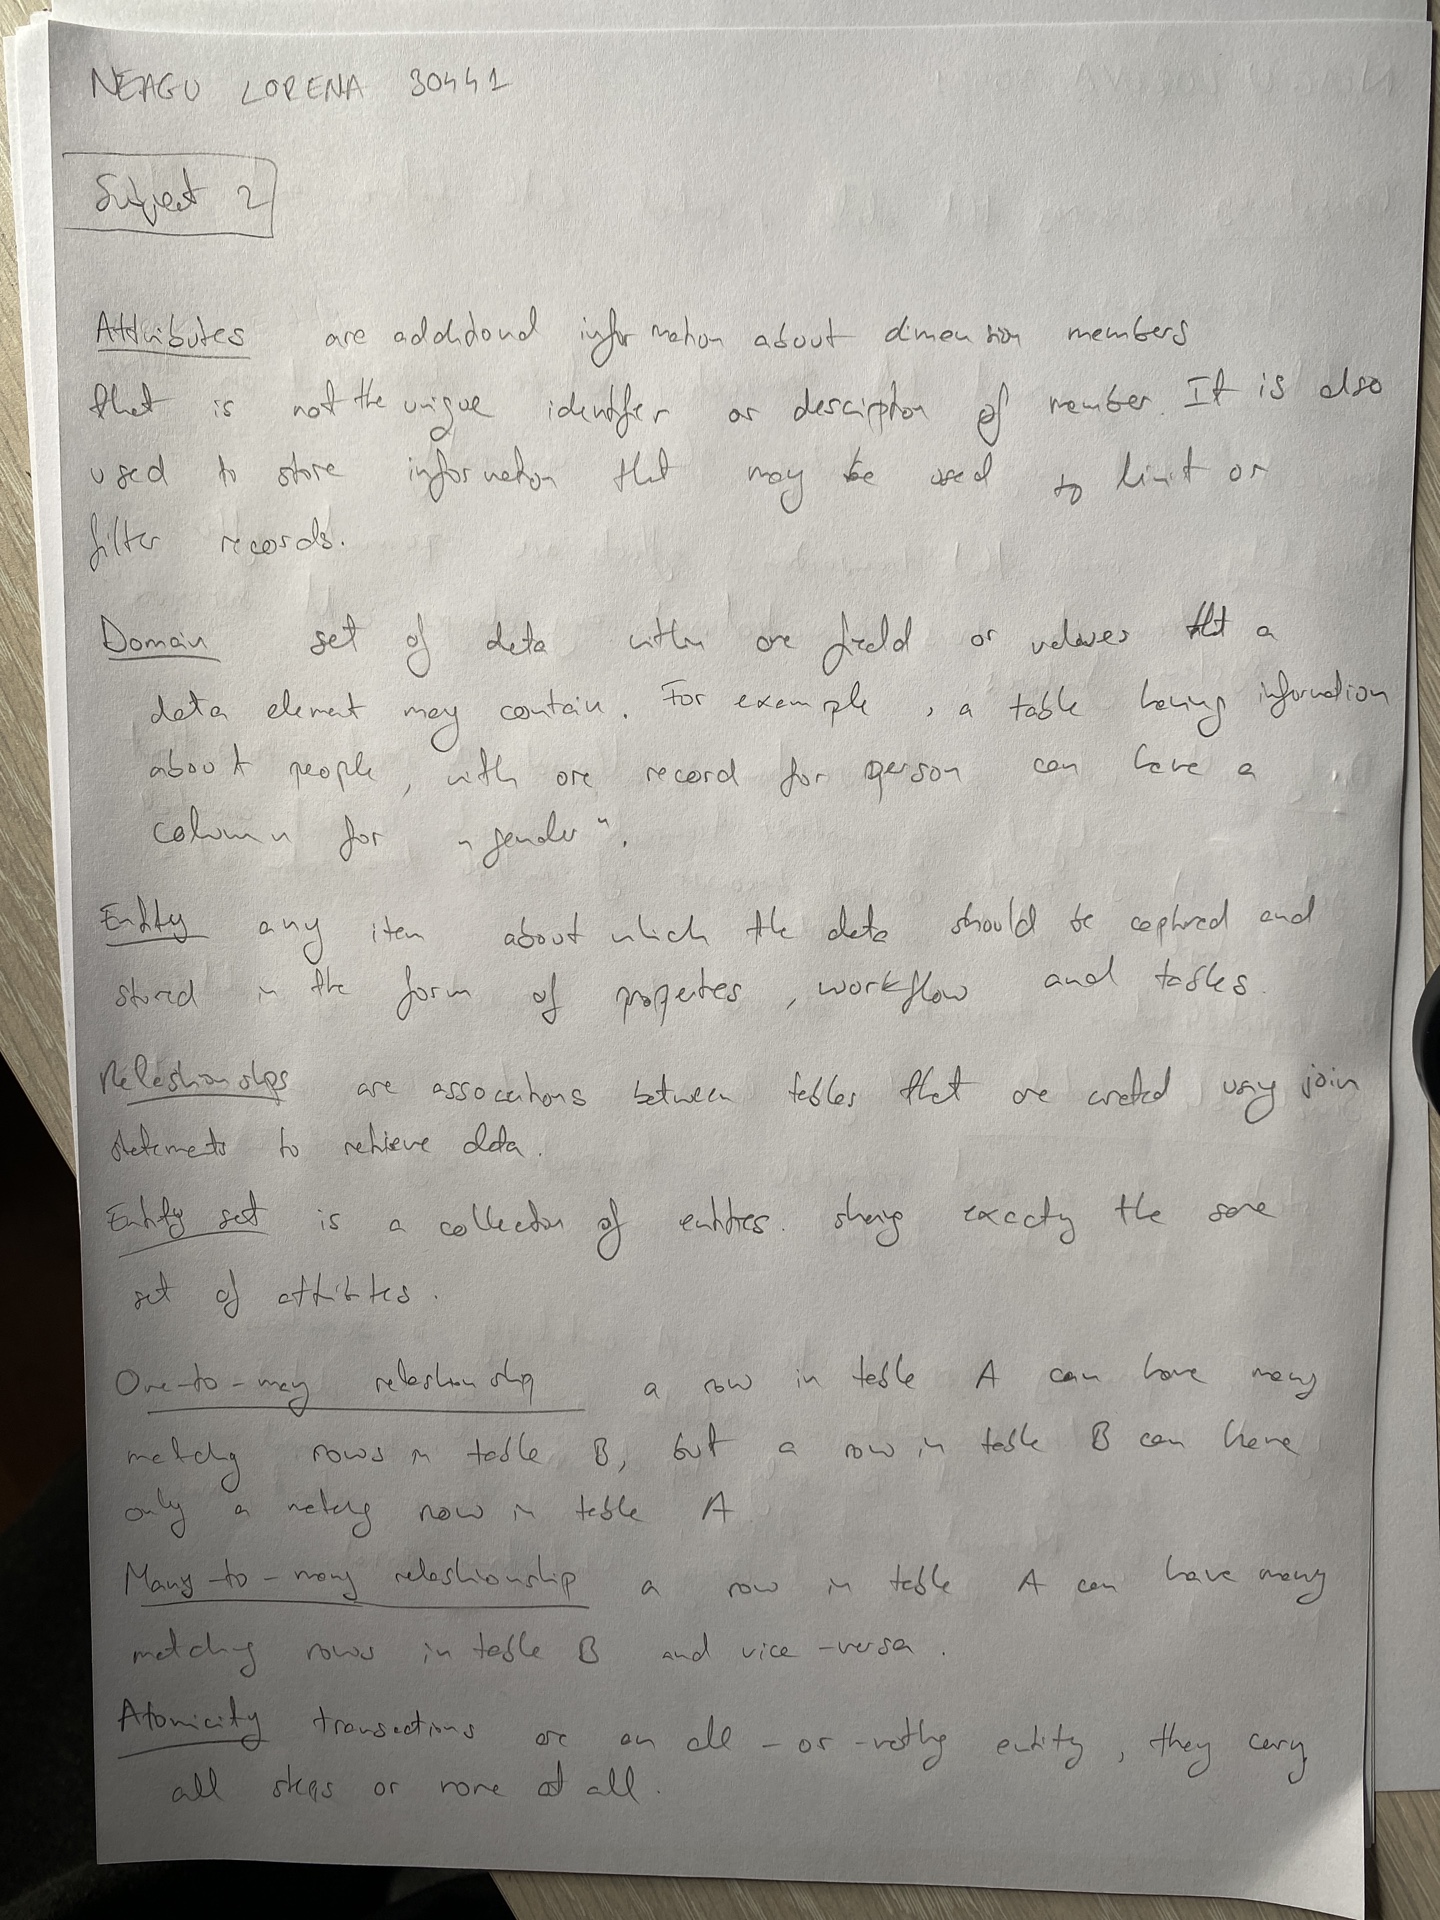 NEAGU LORENA 30441
Subject 2
Attributes are additional information about dimension members
that is not the unique identifier or description of member. It is also
used to store information that may be used to limit or
filter records.
Domain set of data within one field or values that a
data element may contain. For example, a table having information
about people, with one record for person can have a
column for "gender".
Entity any item about which the data should be captured and
stored in the form of properties, workflow and tables.
Relationships are associations between tables that are created using join
statements to retrieve data.
Entity set is a collection of entities sharing exactly the same
set of attributes.
One-to-many relationship a row in table A can have many
matching rows in table B, but a row in table B can have
only a matching row in table A
Many-to-many relationship a row in table A can have many
matching rows in table B and vice-versa.
Atomicity transactions are an all-or-nothing entity, they carry
all steps or none at all.